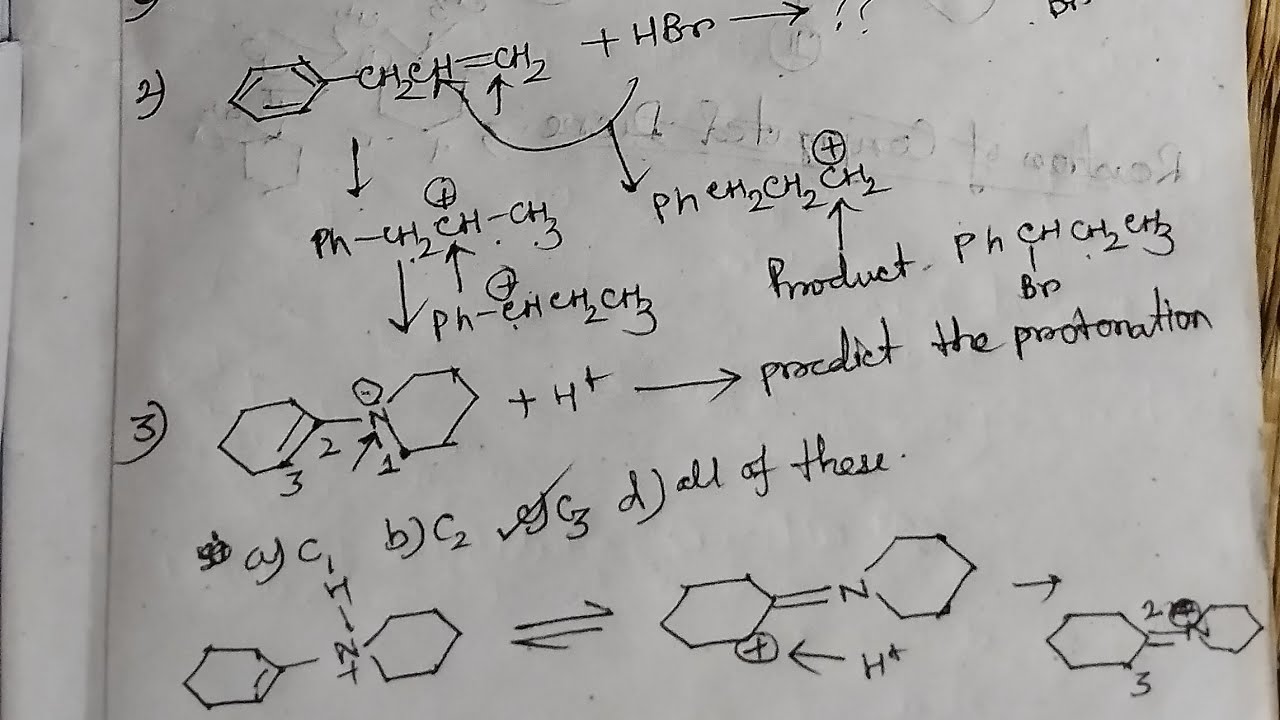 2) CH2CH=CH2 + HBr → ??
Br
Ph-CH2CH-CH3
PhCH2CH2CH2
Ph-CHCH2CH3
Product. PhCHCH2CH3
Br
3) N + H+ → predict the protonation
3 2 1
a) C1 b) C2 c) C3 d) all of these.
H
N
+
N
H+
2 + N
3